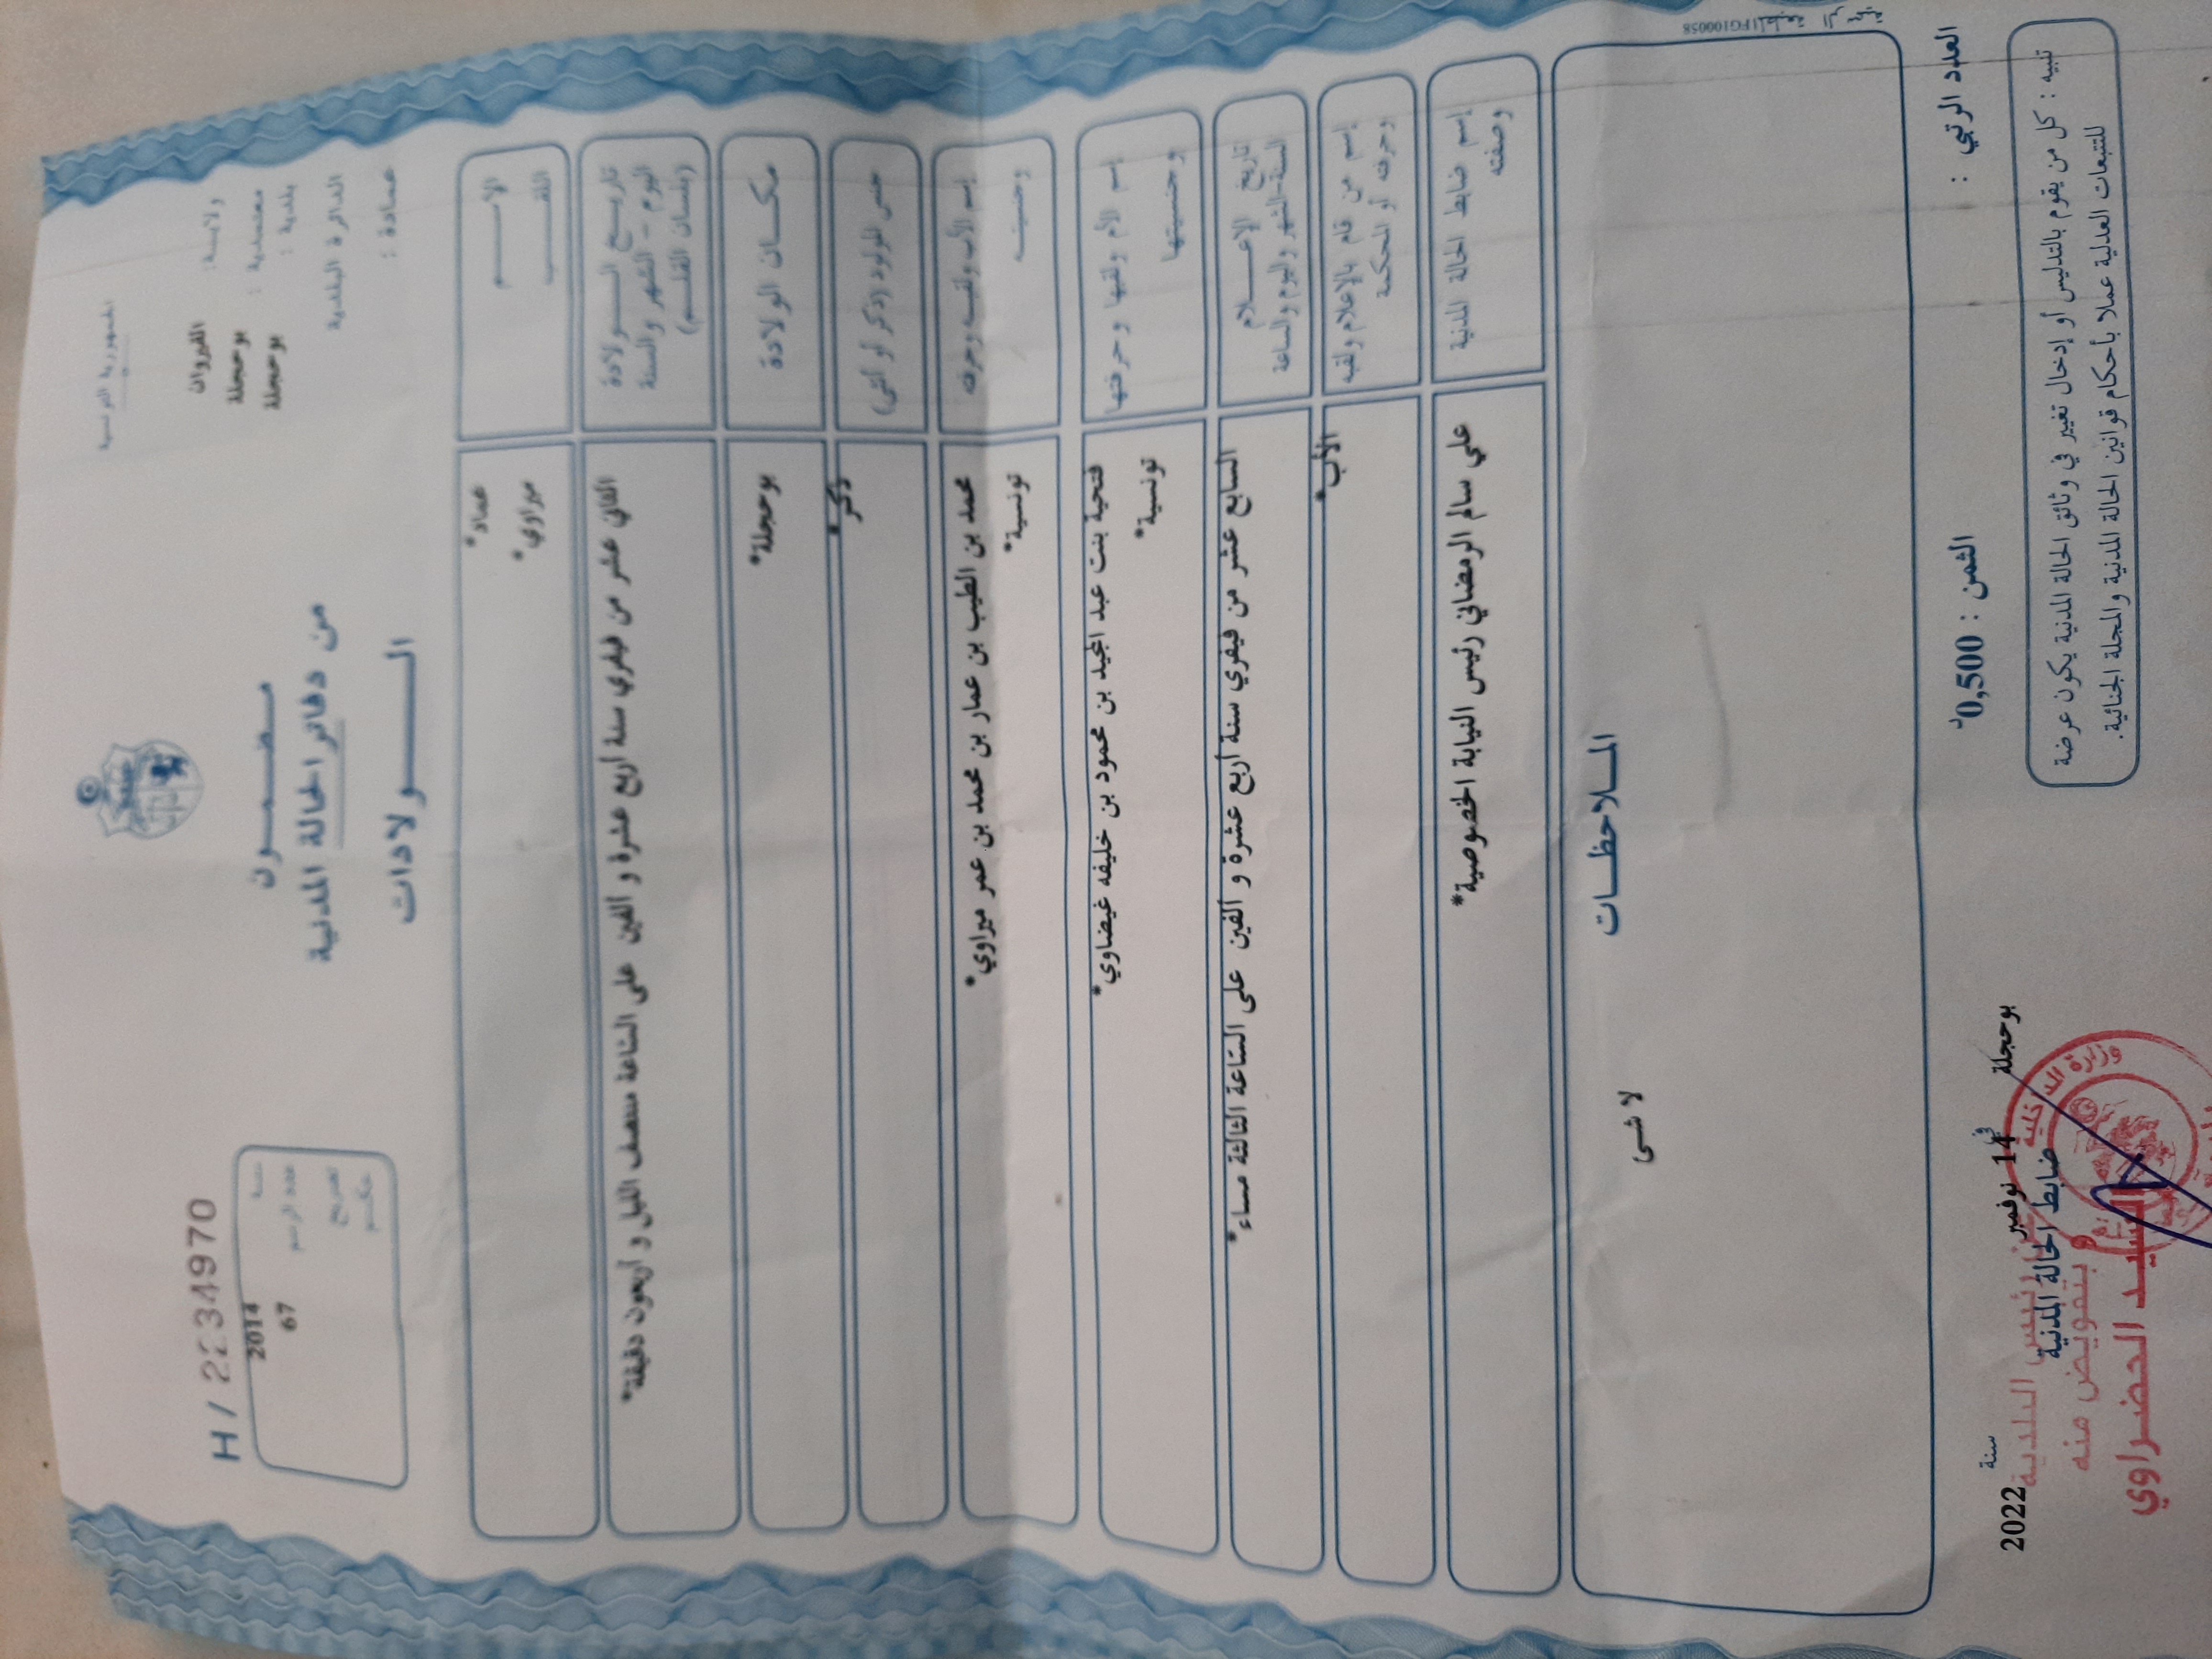 الجمهورية التونسية
ولايـة : القيروان
معتمدية : بوحجلة
بلدية : بوحجلة
الدائرة البلدية
عمادة :
مضمـــون
من دفاتر الحالة المدنية
الـــولادات
H / 2234970
سنة 2014
عدد الرسم 67
تصريح
حكم
الإســـم
اللقـــب
عماد*
ميراوي*
تاريـــخ الـــولادة
اليوم - الشهر والسنة
(بلسان القلـم)
الثاني عشر من فيفري سنة أربع عشرة و ألفين على الساعة منتصف الليل و أربعون دقيقة*
مكـــان الولادة
بوحجلة*
جنس المولود (ذكر أو أنثى)
ذكر*
إسم الأب ولقبـه وحرفته
وجنسيتـه
محمد بن الطيب بن عمار بن محمد بن عمر ميراوي*
تونسية*
إسم الأم ولقبها وحرفتها
وجنسيتها
فتحية بنت عبد المجيد بن محمود بن خليفه غيضاوي*
تونسية*
تاريخ الإعـــلام
السنة-الشهر واليوم والساعة
السابع عشر من فيفري سنة أربع عشرة و ألفين على الساعة الثالثة مساء*
إسم من قام بالإعلام ولقبه
وحرفته أو المحكمة
الأب*
إسم ضابط الحالة المدنية
وصفته
علي سالم الرمضاني رئيس النيابة الخصوصية*
الملاحظـــات
لا شئ
1FG100058
العدد الرتبي :
الثمن : 0,500د
بوحجلة في 14 نوفمبر سنة 2022
ضابط الحالة المدنية
وزارة الداخلية
رئيس البلدية
و بتفويض منه
السيـد الحضـراوي
تنبيه : كل من يقوم بالتدليس أو إدخال تغيير في وثائق الحالة المدنية يكون عرضة
للتتبعات العدلية عملا بأحكام قوانين الحالة المدنية والمجلة الجنائية.